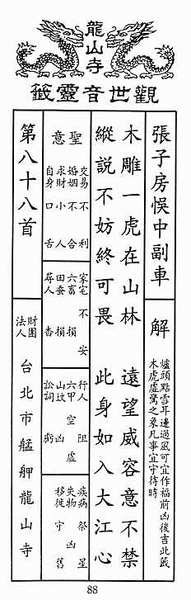 龍山寺
觀世音靈籤
張子房悞中副車
解
爐頭點雪耳連過風可宜作福前凶後吉此籤
木虎虛驚之象凡事宜守待時
木雕一虎在山林 遠望威容意不禁
縱說不妨終可畏 此身如入大江心
聖意
交易 不利
婚姻 不合
求財 小人
自身 口舌
家宅 不安
六畜 損
田蚕 損
尋人 杳
行人 阻
六甲 空虛
山坟 凶
訟詞 病
疾病 祭星
失物 凶
移徙 守舊
第八十八首
財團法人 台北市艋舺龍山寺
88